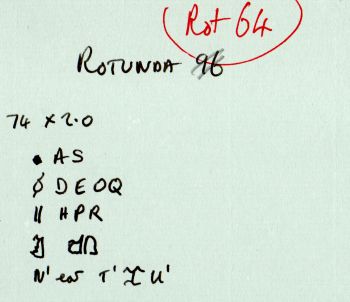 Rot 64
ROTUNDA 96
74 x 2.0
• AS
∮ DEOQ
|| HPR
N' T' U'